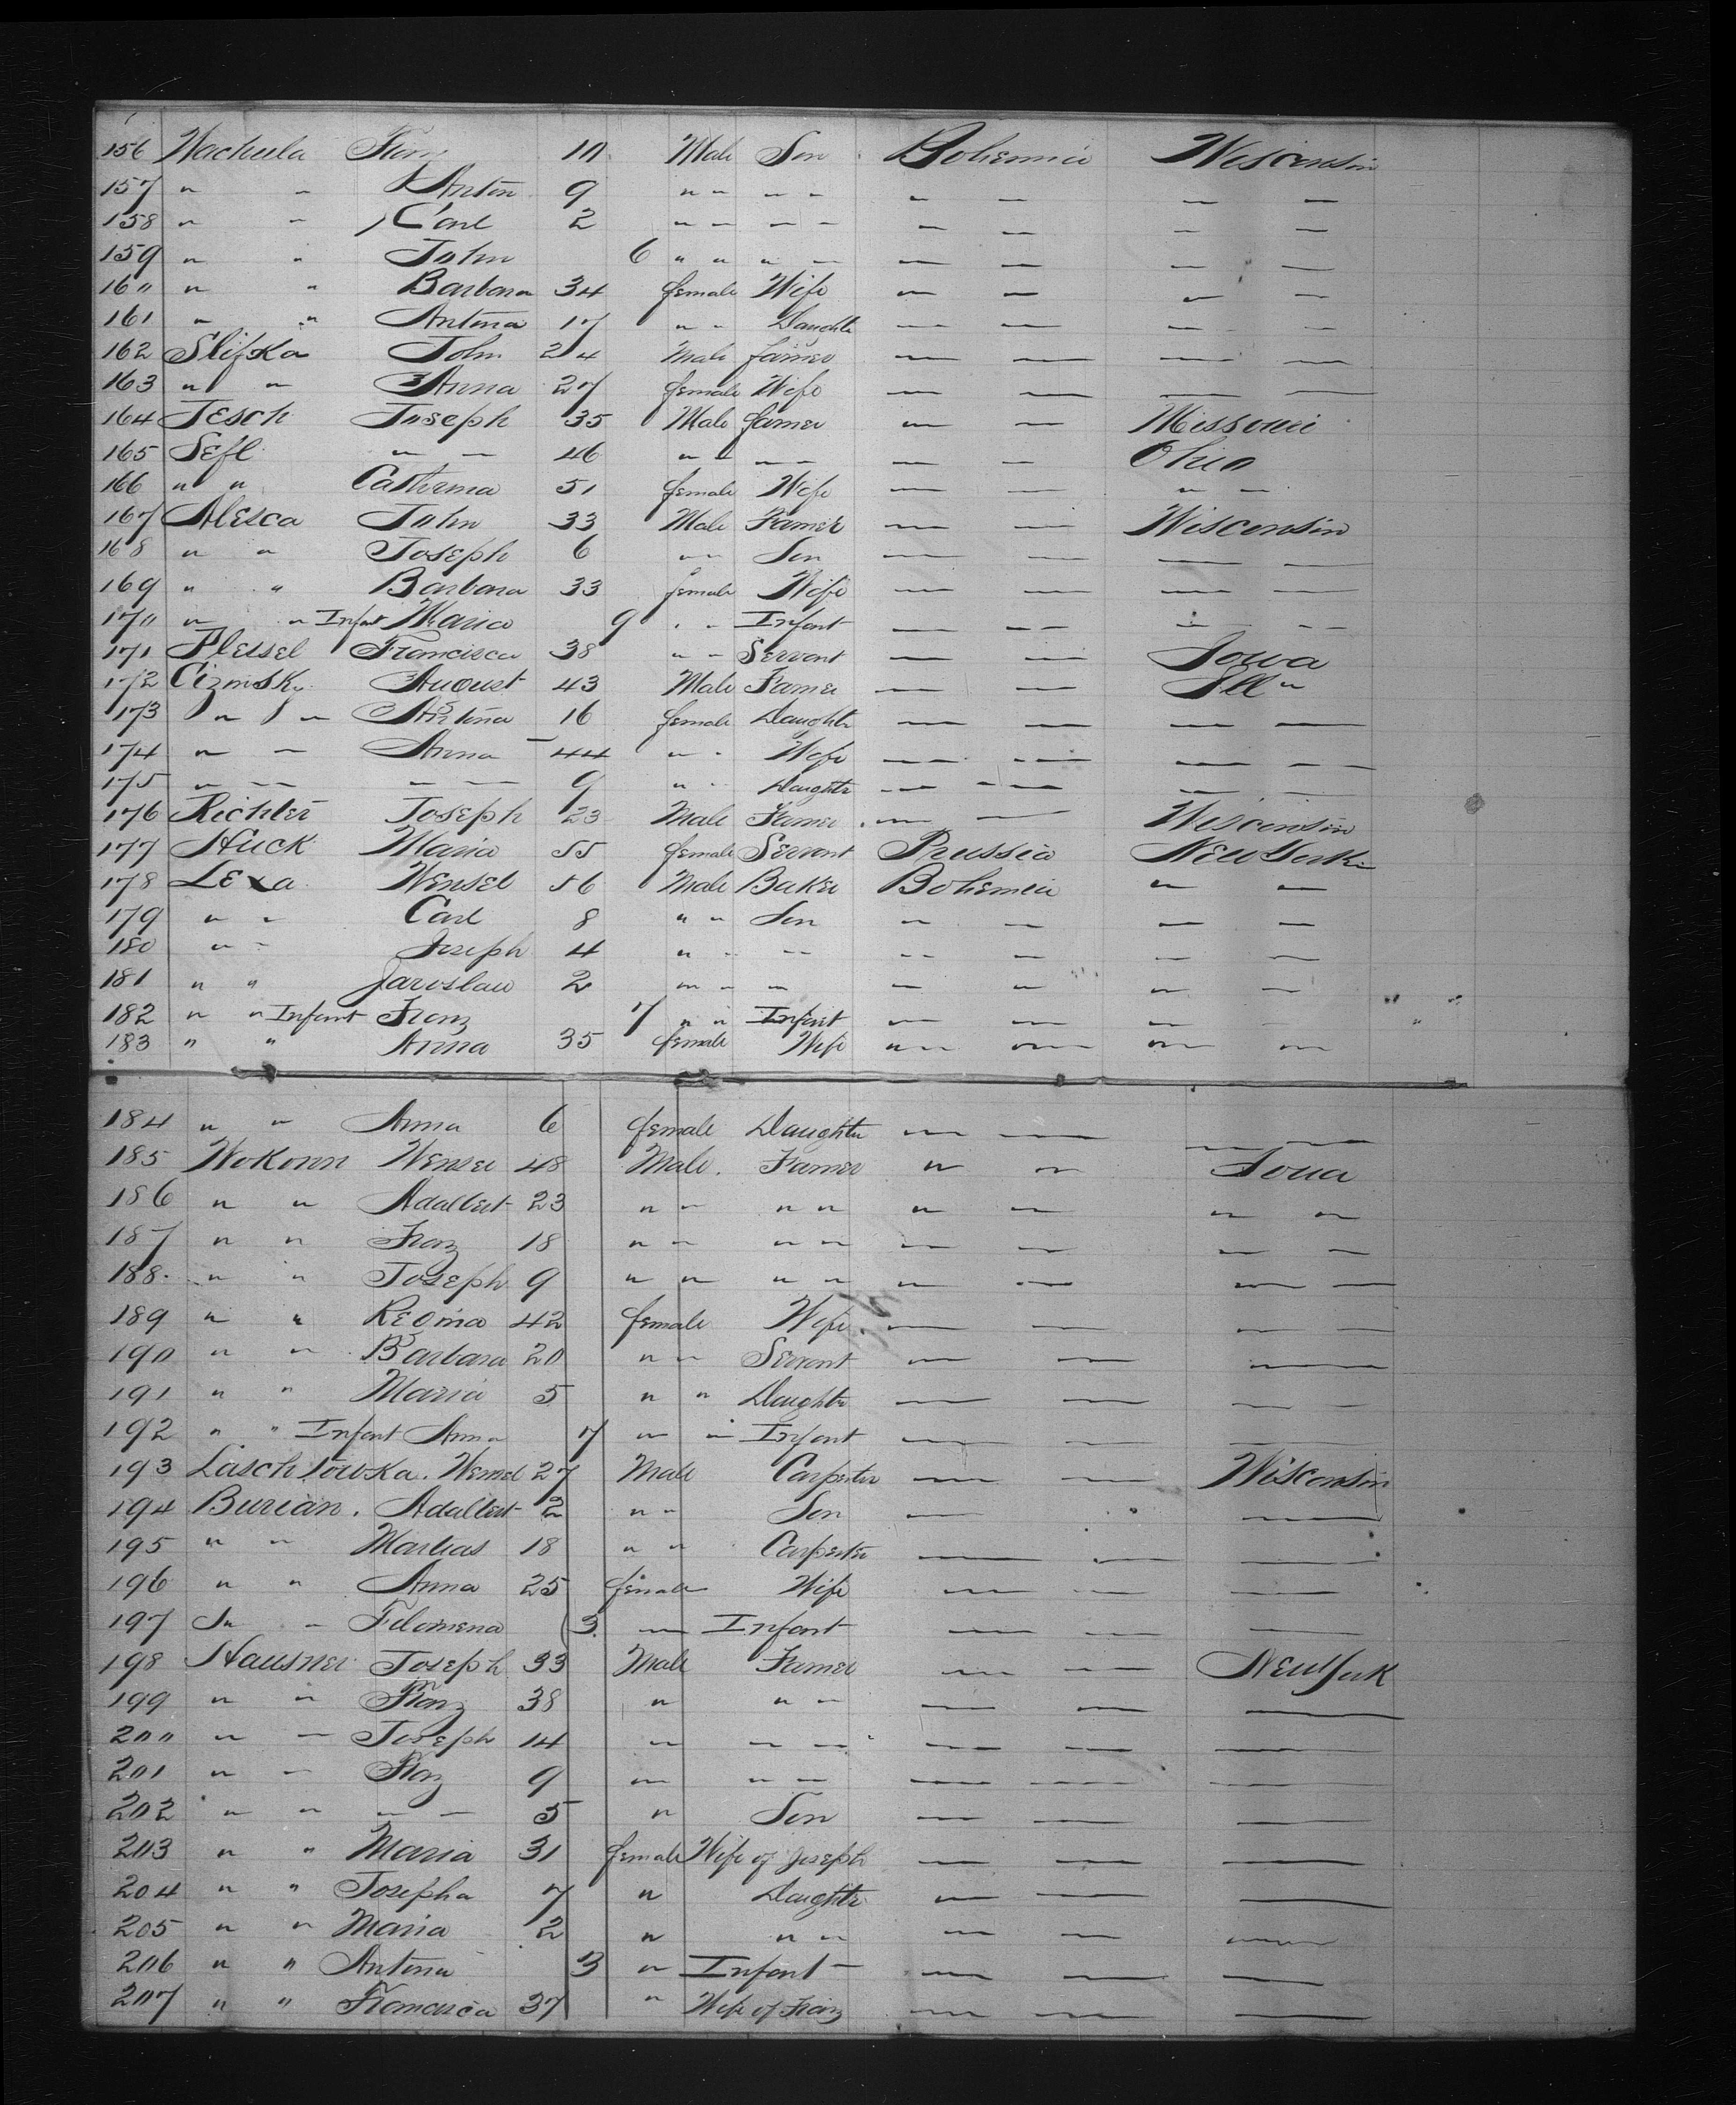 156 Wachula Franz 10 Male Son Bohemia Wisconsin
157 " " Anton 9 " " " " — — — —
158 " " Carl 2 " " — — — — — —
159 " " John 6 " " " — — — — —
160 " " Barbara 34 female Wife — — — —
161 " " Antonia 17 " " Daughtr — — — —
162 Slifka John 24 Male farmer — — — —
163 " " Anna 27 female Wife — — — —
164 Jesch Joseph 35 Male farmer — — Missouri
165 Sefl — — 46 " " — — — — Ohio
166 " " Catherina 51 female Wife — — " "
167 Alesca John 33 Male Farmer — — Wisconsin
168 " " Joseph 6 " " Son — — — —
169 " " Barbara 33 female Wife — — — —
170 " " Infant Maria 9 " " Infant — — — —
171 Plessel Francisca 38 " " Servant — — Iowa
172 Cizmsky August 43 Male Farmer — — Ill "
173 " " Antonia 16 female Daughtr — — — —
174 " — Anna 44 " " Wife — — — —
175 " — — — — 9 " " Daughtr — — — —
176 Richter Joseph 23 Male Farmer — — Wisconsin
177 Huck Maria 55 female Servant Prussia New York
178 Lexa Wensel 56 Male Baker Bohemia — —
179 " " Carl 8 " " Son — — — —
180 " " Joseph 4 " " — — — — — —
181 " " Jaroslaw 2 " " " — — — —
182 " " Infant Franz 7 " " Infant — — — —
183 " " Anna 35 female Wife " " " "
184 " " Anna 6 female Daughter — — — —
185 Wokoun Wensel 48 Male. Farmer " " Iowa
186 " " Adalbert 23 " " " " " — " "
187 " " Franz 18 " " " " — — — —
188. " " Joseph 9 " " " " — — — —
189 " " Regina 42 female Wife — — — —
190 " " Barbara 20 " " Servant — — —
191 " " Maria 5 " " Daughtr — — — —
192 " " Infant Anna 7 " " Infant — — —
193 Wensel 27 Male Carpenter — — Wisconsin
194 Burian. Adalbert 2 " " Son — " —
195 " " 18 " " Carpenter — — —
196 " " Anna 25 female Wife — — —
197 " Filomena 3. — Infant — — —
198 Hausner Joseph 33 Male Farmer — — New York
199 " " Franz 38 " " " — — —
200 " — Joseph 14 — — — — — —
201 " — Franz 9 — " — — — —
202 " " — — 5 " Son — — —
203 " " Maria 31 female Wife of Joseph — — —
204 " " Josepha 7 " Daughtr — — —
205 " " Maria 2 " " " — — —
206 " " Antonia 3 " Infant — — — —
207 " " Francisca 37 " Wife of Franz — — —